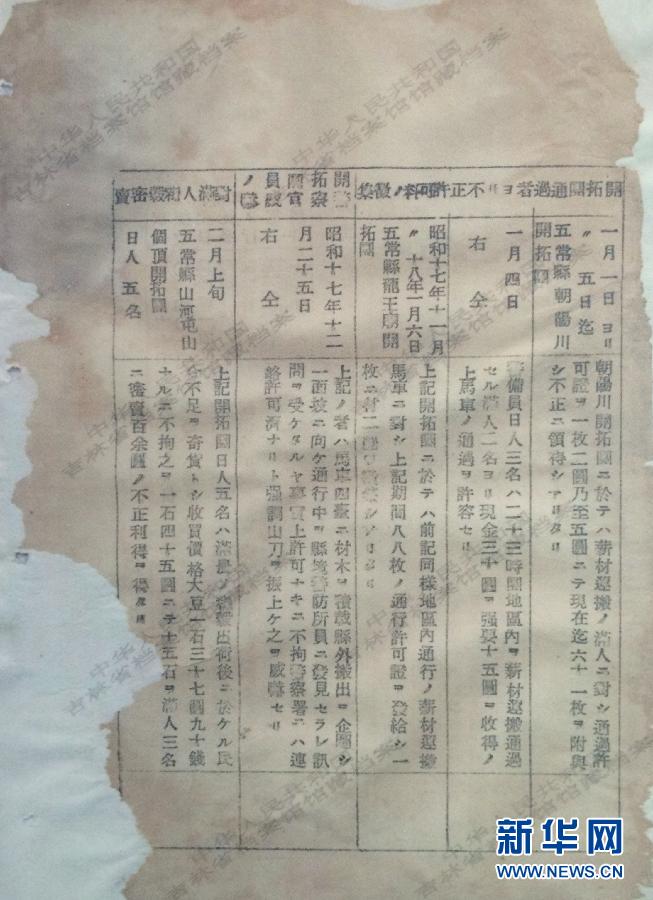 開拓團通過者ヨリ不正許可料ノ徴集
一月一日ヨリ
〃五日迄
五常縣朝陽川
開拓團
朝陽川開拓團ニ於テハ薪材運搬ノ滿人ニ對シ通過許
可證ヲ一枚二圓乃至五圓ニテ現在迄六十一枚ヲ附與
シ不正ニ領得シアリタリ
一月四日
右仝
警備員日人三名ハ二十三時團地區內ヲ薪材運搬通過
セル滿人二名ヨリ現金三十圓ヲ强要十五圓ヲ收得ノ
上馬車ノ通過ヲ許容セリ
昭和十七年十一月
〃十八年一月六日
五常縣龍王廟開
拓團
上記開拓團ニ於テハ前記同樣地區內通行ノ薪材運搬
馬車ニ對シ上記期間八八枚ノ通行許可證ヲ發給シ一
枚ニ付二圓
開拓
警察
官
員
ノ
昭和十七年十二
月二十五日
右仝
上記ノ者ハ馬車四臺ニ材木ヲ積載縣外搬出ヲ企圖シ
一面坡ニ向ケ通行中ヲ縣境警防所員ニ發見セラレ訊
問ヲ受ケタルヤ事實上許可ナキニ不拘警察署ニハ連
絡許可濟ナリト强調山刀ヲ振上ケ之ヲ威脅セリ
對滿人糧穀密賣
二月上旬
五常縣山河屯山
個頂開拓團
日人五名
上記開拓團日人五名ハ滿農ノ糧穀出荷後ニ於ケル民
食不足ヲ奇貨トシ收買價格大豆一石三十七圓九十錢
ナルニ不拘之ヲ一石四十五圓ニテ十五石ヲ滿人三名
ニ密賣百余圓ノ不正利得ヲ得タリ
中华人民共和国
吉林省档案馆馆藏档案
新华网
WWW.NEWS.CN